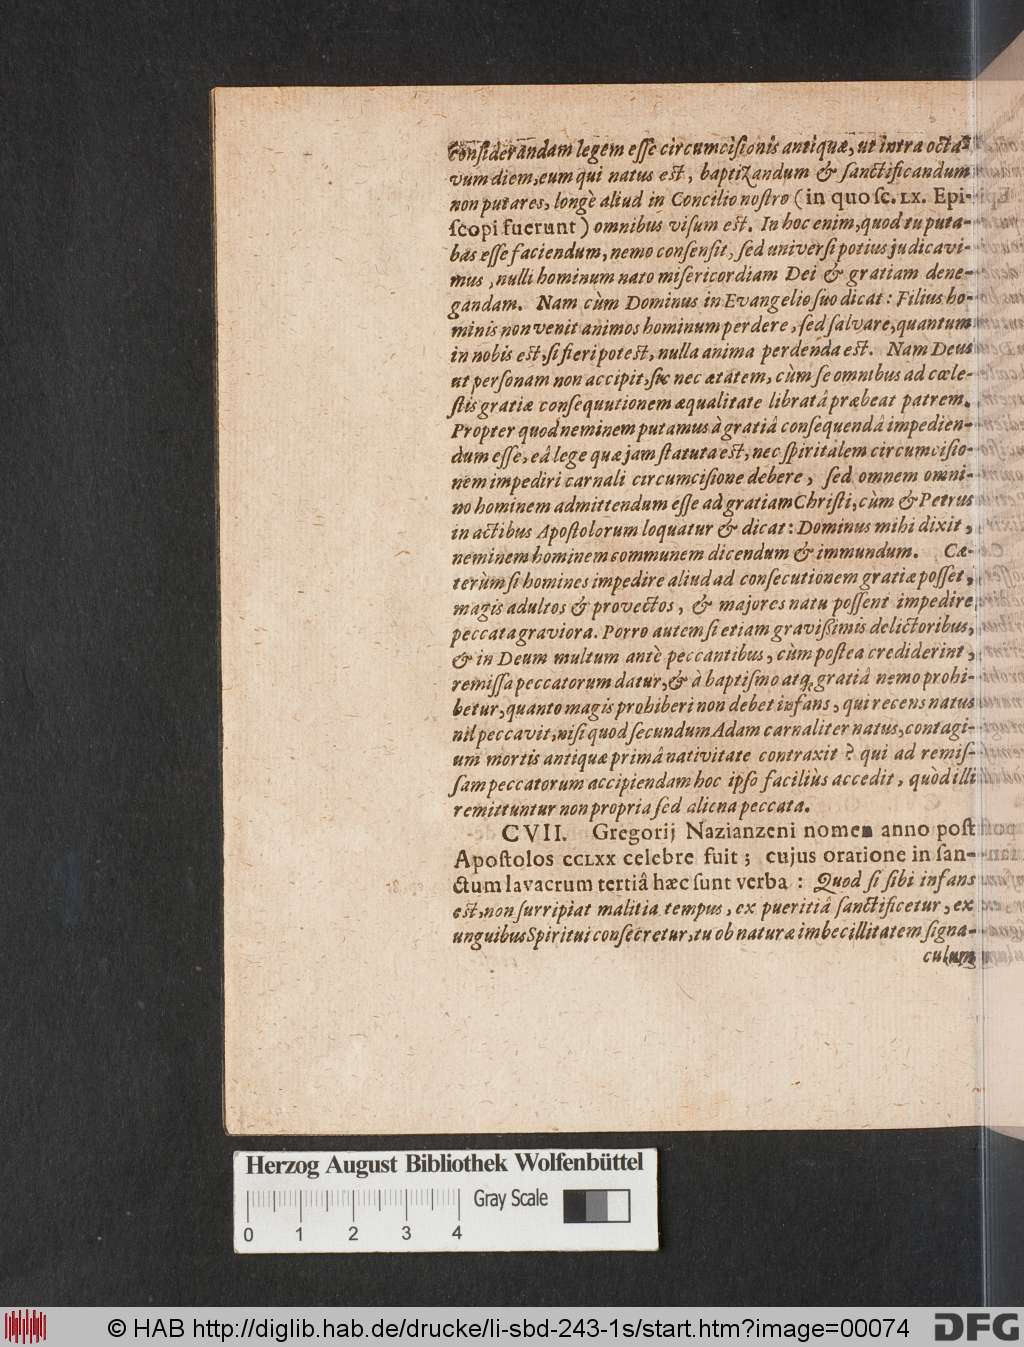 considerandam legem esse circumcisionis antiquæ, ut intra octa-
vum diem, eum qui natus est, baptizandum & sanctificandum
non putares, longè aliud in Concilio nostro (in quo sc. LX. Epi-
scopi fuerunt) omnibus visum est. In hoc enim, quod tu puta-
bas esse faciendum, nemo consensit, sed universi potius judicavi-
mus, nulli hominum nato misericordiam Dei & gratiam dene-
gandam. Nam cùm Dominus in Evangelio suo dicat: Filius ho-
minis non venit animos hominum perdere, sed salvare, quantum
in nobis est, si fieri potest, nulla anima perdenda est. Nam Deus
ut personam non accipit, sic nec ætatem, cùm se omnibus ad cœle-
stis gratiæ consequutionem æqualitate libratâ præbeat patrem.
Propter quod neminem putamus à gratiâ consequendâ impedien-
dum esse, eâ lege quæ jam statuta est, nec spiritalem circumcisio-
nem impediri carnali circumcisione debere, sed omnem omni-
no hominem admittendum esse ad gratiam Christi, cùm & Petrus
in actibus Apostolorum loquatur & dicat: Dominus mihi dixit,
neminem hominem communem dicendum & immundum. Cæ-
terùm si homines impedire aliud ad consecutionem gratiæ posset,
magis adultos & provectos, & majores natu possent impedire
peccata graviora. Porro autem si etiam gravissimis delictoribus,
& in Deum multum antè peccantibus, cùm postea crediderint,
remissa peccatorum datur, & à baptismo atq; gratiâ nemo prohi-
betur, quanto magis prohiberi non debet infans, qui recens natus
nil peccavit, nisi quod secundum Adam carnaliter natus, contagi-
um mortis antiquæ primâ nativitate contraxit? qui ad remis-
sam peccatorum accipiendam hoc ipso faciliùs accedit, quòd illi
remittuntur non propria sed aliena peccata.
CVII. Gregorij Nazianzeni nomen anno post
Apostolos CCLXX celebre fuit; cujus oratione in san-
ctum lavacrum tertiâ hæc sunt verba: Quod si sibi infans
est, non surripiat malitia tempus, ex pueritiâ sanctificetur, ex
unguibus Spiritui consecretur, tu ob naturæ imbecillitatem signa-
culum
Herzog August Bibliothek Wolfenbüttel
Gray Scale
0 1 2 3 4
© HAB http://diglib.hab.de/drucke/li-sbd-243-1s/start.htm?image=00074
DFG